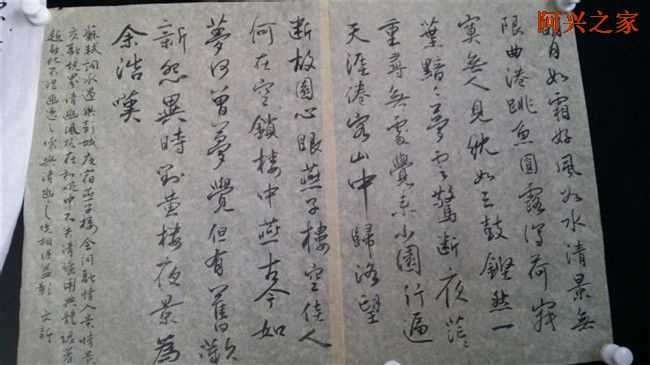 阿兴之家
明月如霜好風如水清景無
限曲港跳魚圓露瀉荷寂
寞無人見紞如三鼓鏗然一
葉黯〻夢雲驚斷夜茫〻
重尋無處覺來小園行遍
天涯倦客山中歸路望
斷故園心眼燕子樓空佳人
何在空鎖樓中燕古今如
夢何曾夢覺但有舊歡
新怨異時對黃樓夜景為
余浩嘆
蘇軾詞永遇樂彭城夜宿燕子樓